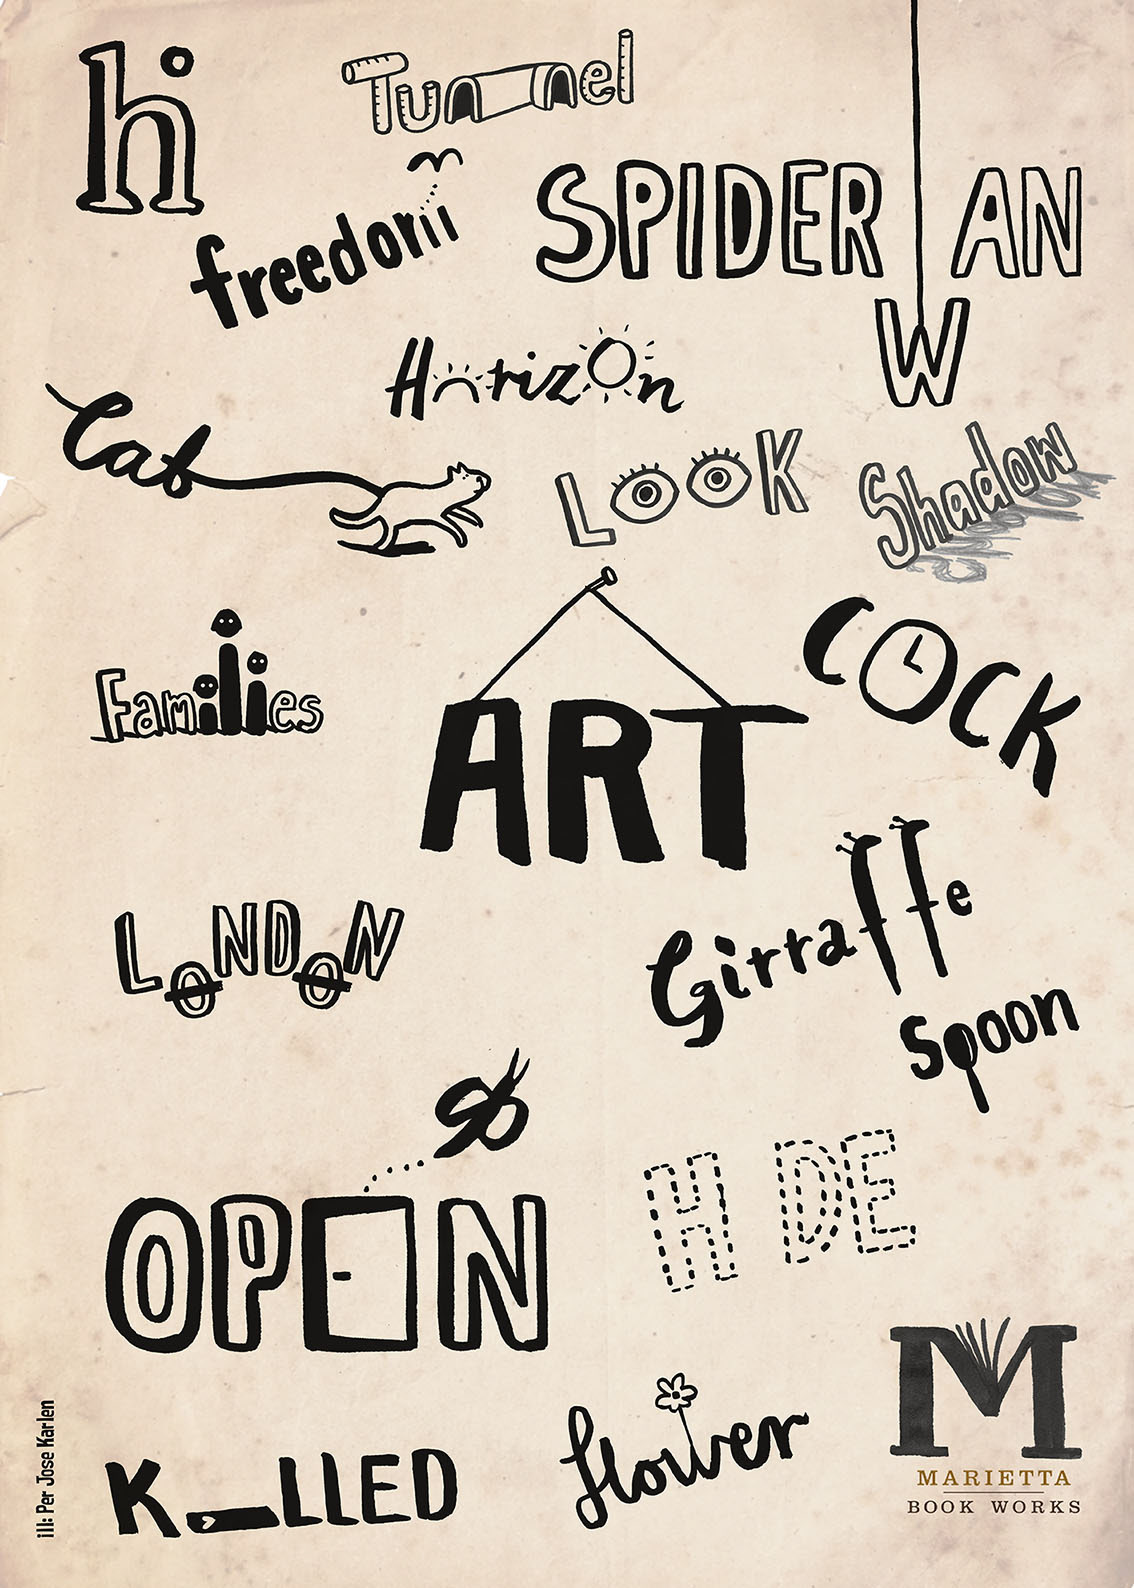 hi
Tunnel
freedom
SPIDERMAN
Horizon
Cat
LOOK
Shadow
Families
ART
CLOCK
LONDON
Girraffe
Spoon
OPEN
H DE
KILLED
flower
M
MARIETTA
BOOK WORKS
ill: Per Jose Karlen